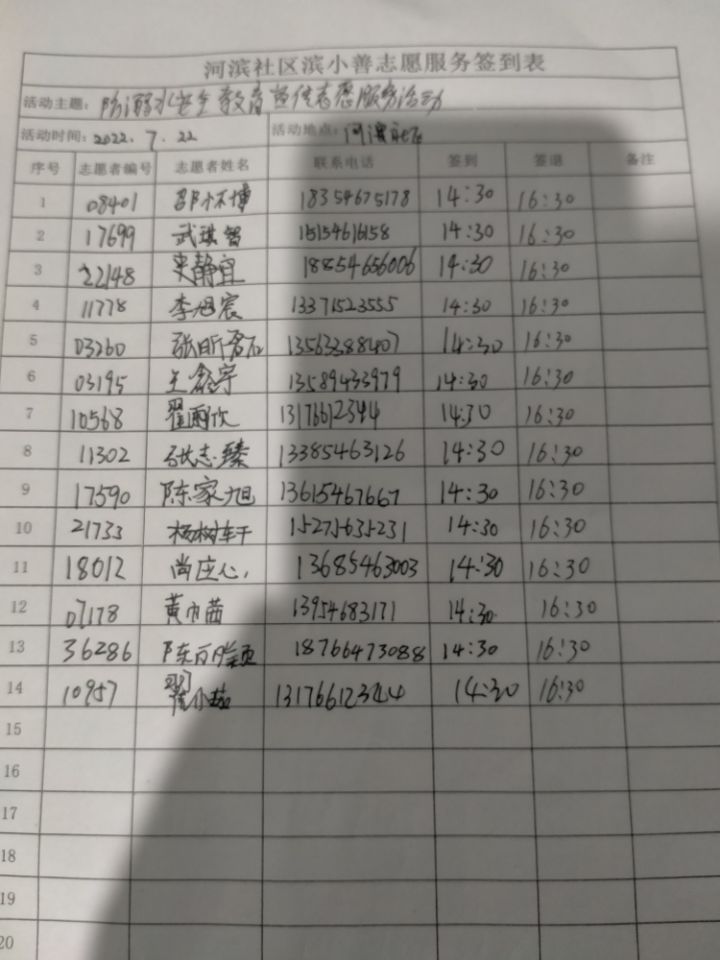 河滨社区滨小善志愿服务签到表
活动主题：防溺水安全教育宣传志愿服务活动
活动时间：2022.7.22 活动地点：河滨社区
序号 志愿者编号 志愿者姓名 联系电话 签到 签退 备注
1 08401 18354675178 14:30 16:30
2 17699 武琪智 15154616158 14:30 16:30
3 22148 吴静宜 18854656006 14:30 16:30
4 11778 李旭宸 13371523555 14:30 16:30
5 03260 13563388407 14:30 16:30
6 03195 王鑫宇 13589433979 14:30 16:30
7 10568 翟雨欣 13176612344 14:30 16:30
8 11302 张志臻 13385463126 14:30 16:30
9 17590 陈家旭 13615467667 14:30 16:30
10 21733 杨树轩 15275635231 14:30 16:30
11 18012 尚庄心 13685463003 14:30 16:30
12 07178 13954683171 14:30 16:30
13 36286 18766473088 14:30 16:30
14 10957 13176612344 14:30 16:30
15
16
17
18
19
20